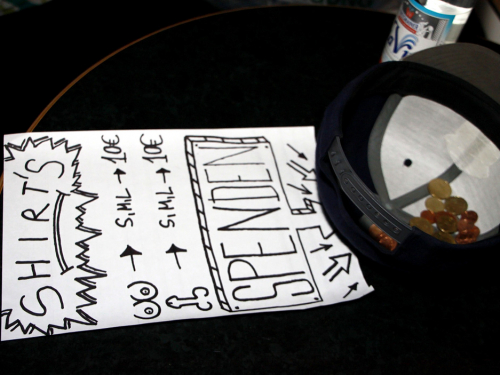 SHIRT'S
S, M, L → 10€
S, M, L → 10€
SPENDEN